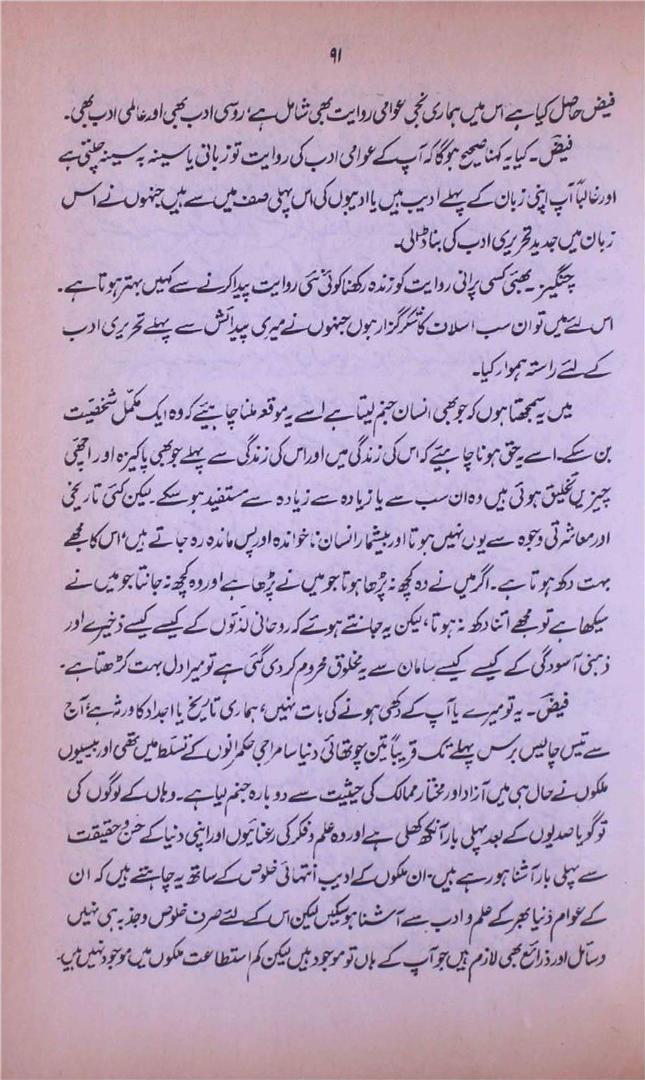 ۹۱
فیض حاصل کیا ہے اس میں ہماری نجی عوامی روایت بھی شامل ہے، روسی ادب بھی اور عالمی ادب بھی۔
فیضؔ۔ کیا یہ کہنا صحیح ہوگا کہ آپ کے عوامی ادب کی روایت تو زبانی یا سینہ بہ سینہ چلتی ہے
اور غالباً آپ اپنی زبان کے پہلے ادیب ہیں یا ادیبوں کی اس پہلی صف میں سے ہیں جنہوں نے اس
زبان میں جدید تحریری ادب کی بنا ڈالی۔
چنگیز۔ بھئی کسی پرانی روایت کو زندہ رکھنا کوئی نئی روایت پیدا کرنے سے کہیں بہتر ہوتا ہے۔
اس لئے میں تو ان سب اسلاف کا شکر گزار ہوں جنہوں نے میری پیدائش سے پہلے تحریری ادب
کے لئے راستہ ہموار کیا۔
میں یہ سمجھتا ہوں کہ جو بھی انسان جنم لیتا ہے اسے یہ موقعہ ملنا چاہیئے کہ وہ ایک مکمل شخصیت
بن سکے۔ اسے یہ حق ہونا چاہیئے کہ اس کی زندگی میں اور اس کی زندگی سے پہلے جو بھی پاکیزہ اور اچھی
چیزیں تخلیق ہوئی ہیں وہ ان سب سے یا زیادہ سے زیادہ سے مستفید ہو سکے لیکن کئی تاریخی
اور معاشرتی وجوہ سے یوں نہیں ہوتا اور بیشمار انسان ناخواندہ اور پس ماندہ رہ جاتے ہیں، اس کا مجھے
بہت دکھ ہوتا ہے۔ اگر میں نے وہ کچھ نہ پڑھا ہوتا جو میں نے پڑھا ہے اور وہ کچھ نہ جانتا جو میں نے
سیکھا ہے تو مجھے اتنا دکھ نہ ہوتا، لیکن یہ جانتے ہوئے کہ روحانی لذتوں کے کیسے کیسے ذخیرے اور
ذہنی آسودگی کے کیسے کیسے سامان سے یہ مخلوق محروم کر دی گئی ہے تو میرا دل بہت کڑھتا ہے۔
فیضؔ۔ یہ تو میرے یا آپ کے دکھی ہونے کی بات نہیں، ہماری تاریخ یا اجداد کا ورثہ ہے، آج
سے تیس چالیس برس پہلے تک قریباً تین چوتھائی دنیا سامراجی حکمرانوں کے تسلط میں تھی اور بیسیوں
ملکوں نے حال ہی میں آزاد اور مختار ممالک کی حیثیت سے دوبارہ جنم لیا ہے۔ وہاں کے لوگوں کی
تو گویا صدیوں کے بعد پہلی بار آنکھ کھلی ہے اور وہ علم و فکر کی رعنائیوں اور اپنی دنیا کے حسن و حقیقت
سے پہلی بار آشنا ہو رہے ہیں۔ ان ملکوں کے ادیب انتہائی خلوص کے ساتھ یہ چاہتے ہیں کہ ان
کے عوام دنیا بھر کے علم و ادب سے آشنا ہو سکیں لیکن اس کے لئے صرف خلوص و جذبہ ہی نہیں
وسائل اور ذرائع بھی لازم ہیں جو آپ کے ہاں تو موجود ہیں لیکن کم استطاعت ملکوں میں موجود نہیں ہیں۔